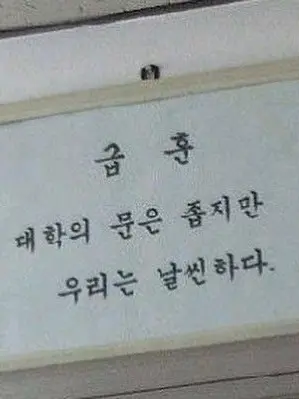 급 훈
대학의 문은 좁지만
우리는 날씬하다.